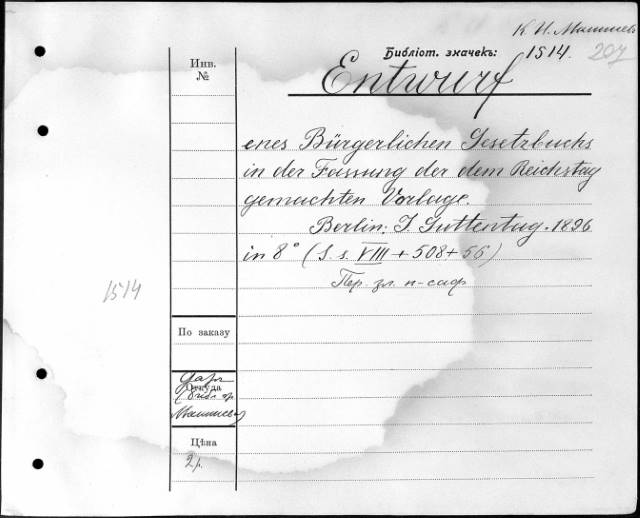 К. И. Малышев
Библіот. значекъ: 1514. 207
Инв.
№
Entwurf
enes Bürgerlichen Gesetzbuchs
in der Fassung der dem Reichstag
gemachten Vorlage.
Berlin: J. Guttentag. 1896
in 8° (S. s. VIII + 508 + 56)
Пер.
1514
По заказу
Откуда
Даръ
Цѣна
2 р.